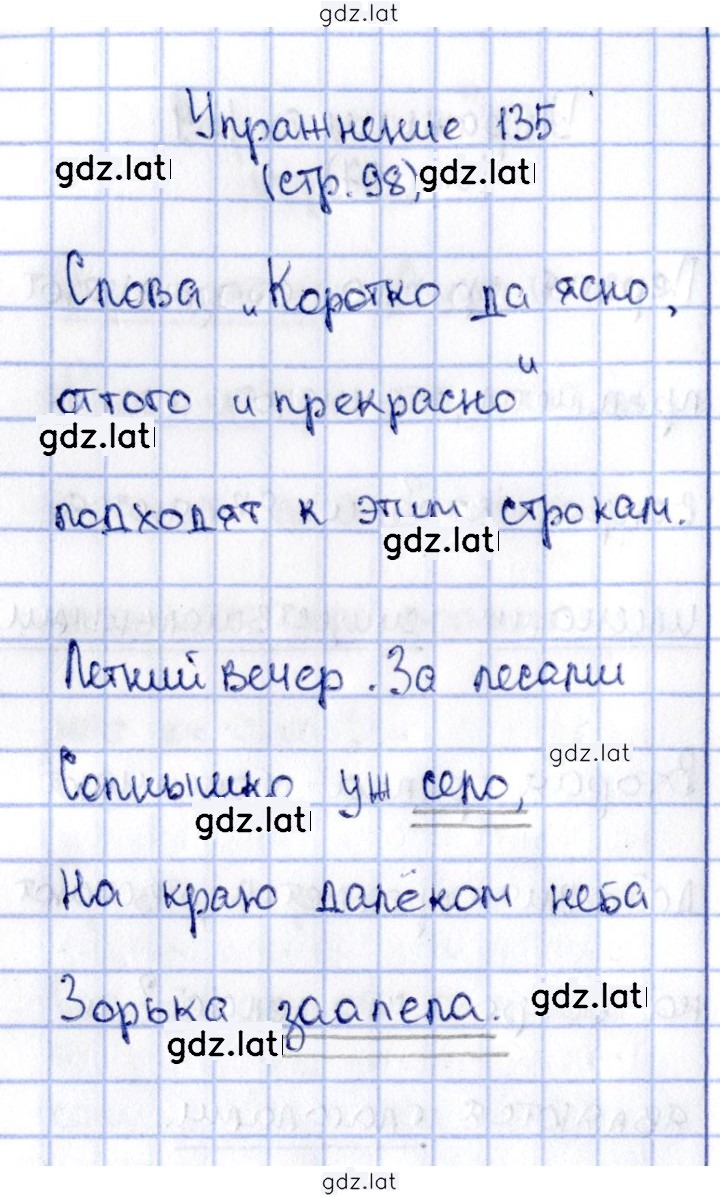 gdz.lat
Упражнение 135
gdz.lat (стр. 98), gdz.lat
Слова „Коротко да ясно,
оттого и прекрасно"
gdz.lat
подходят к этим строкам.
gdz.lat
Летний вечер. За лесами
gdz.lat
Солнышко уж село,
gdz.lat
На краю далёком неба
Зорька заалела. gdz.lat
gdz.lat
gdz.lat